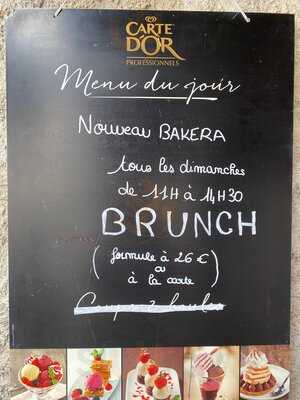 CARTE
D'OR
PROFESSIONNELS
Menu du jour
Nouveau BAKERA
tous les dimanches
de 11H à 14H30
BRUNCH
(formule à 26 €)
ou
à la carte
Coupe 2 boules